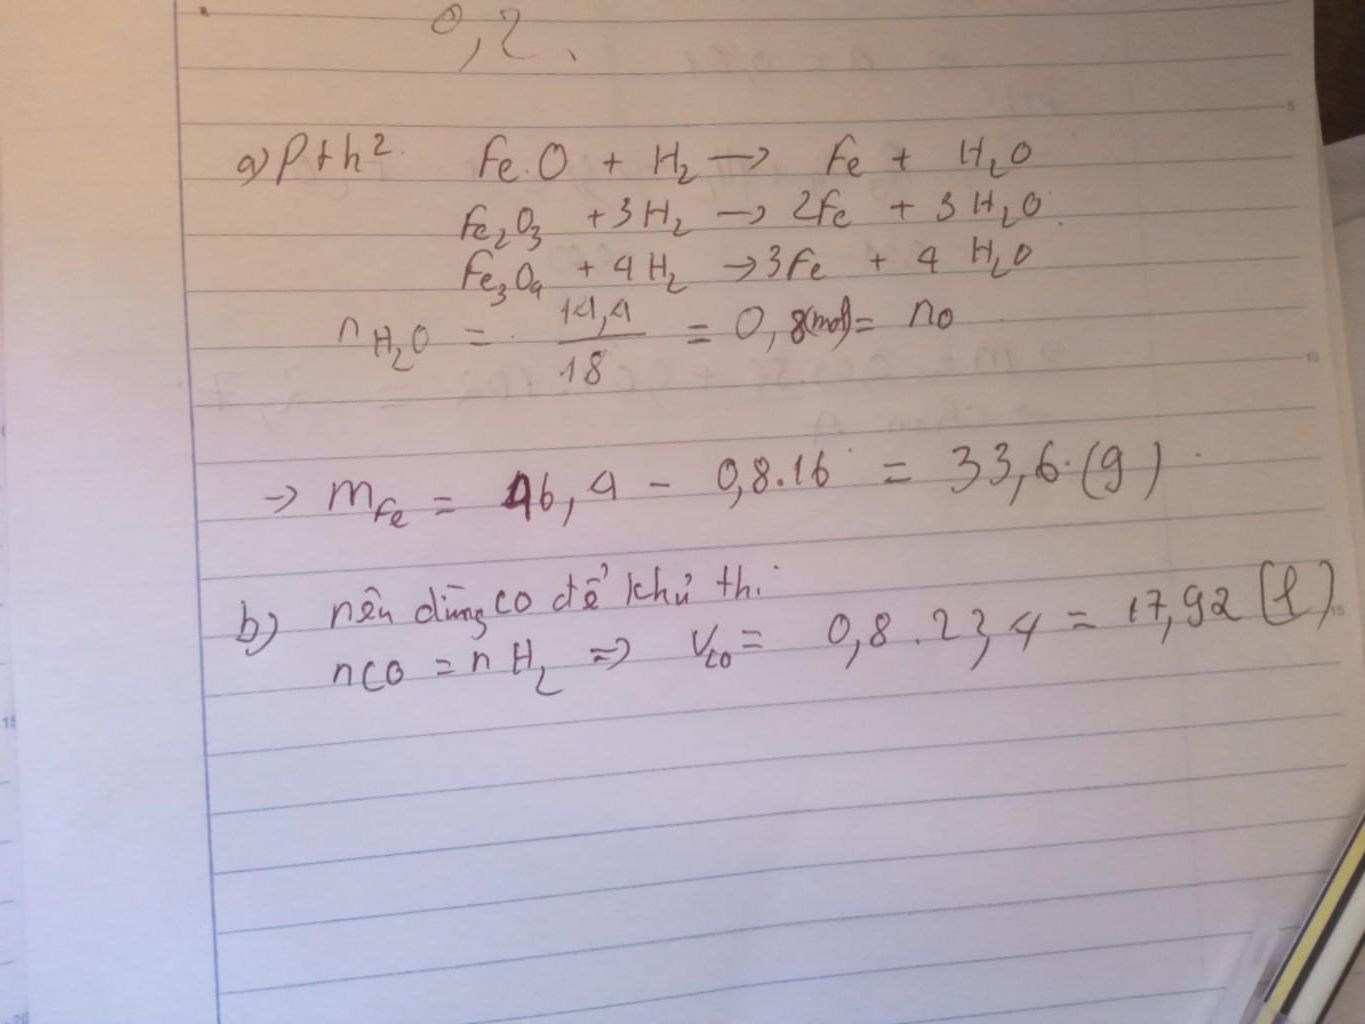 0,2.
a) Pth² Fe.O + H₂ → Fe + H₂O
Fe₂O₃ + 3H₂ → 2Fe + 3H₂O.
Fe₃O₄ + 4H₂ → 3Fe + 4 H₂O
n H₂O = 14,4 / 18 = 0,8(mol) = nO
→ mFe = 46,4 - 0,8.16 = 33,6.(g)
b) nên dùng CO để khử thì
nCO = n H₂ ⇒ Vco = 0,8 . 22,4 = 17,92 (l)
5
10
15
15
20